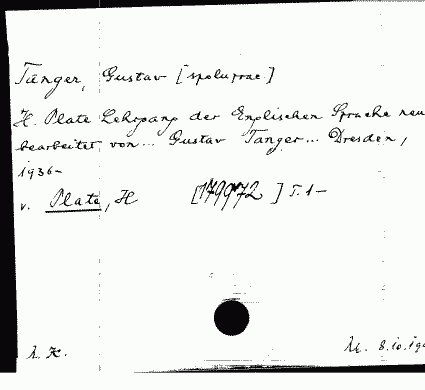 Tanger, Gustav [spoluprac.]
H. Plate Lehrgang der Englischen Sprache neu
bearbeitet von... Gustav Tanger... Dresden,
1936-
v. Plate, H [179972] T.1-